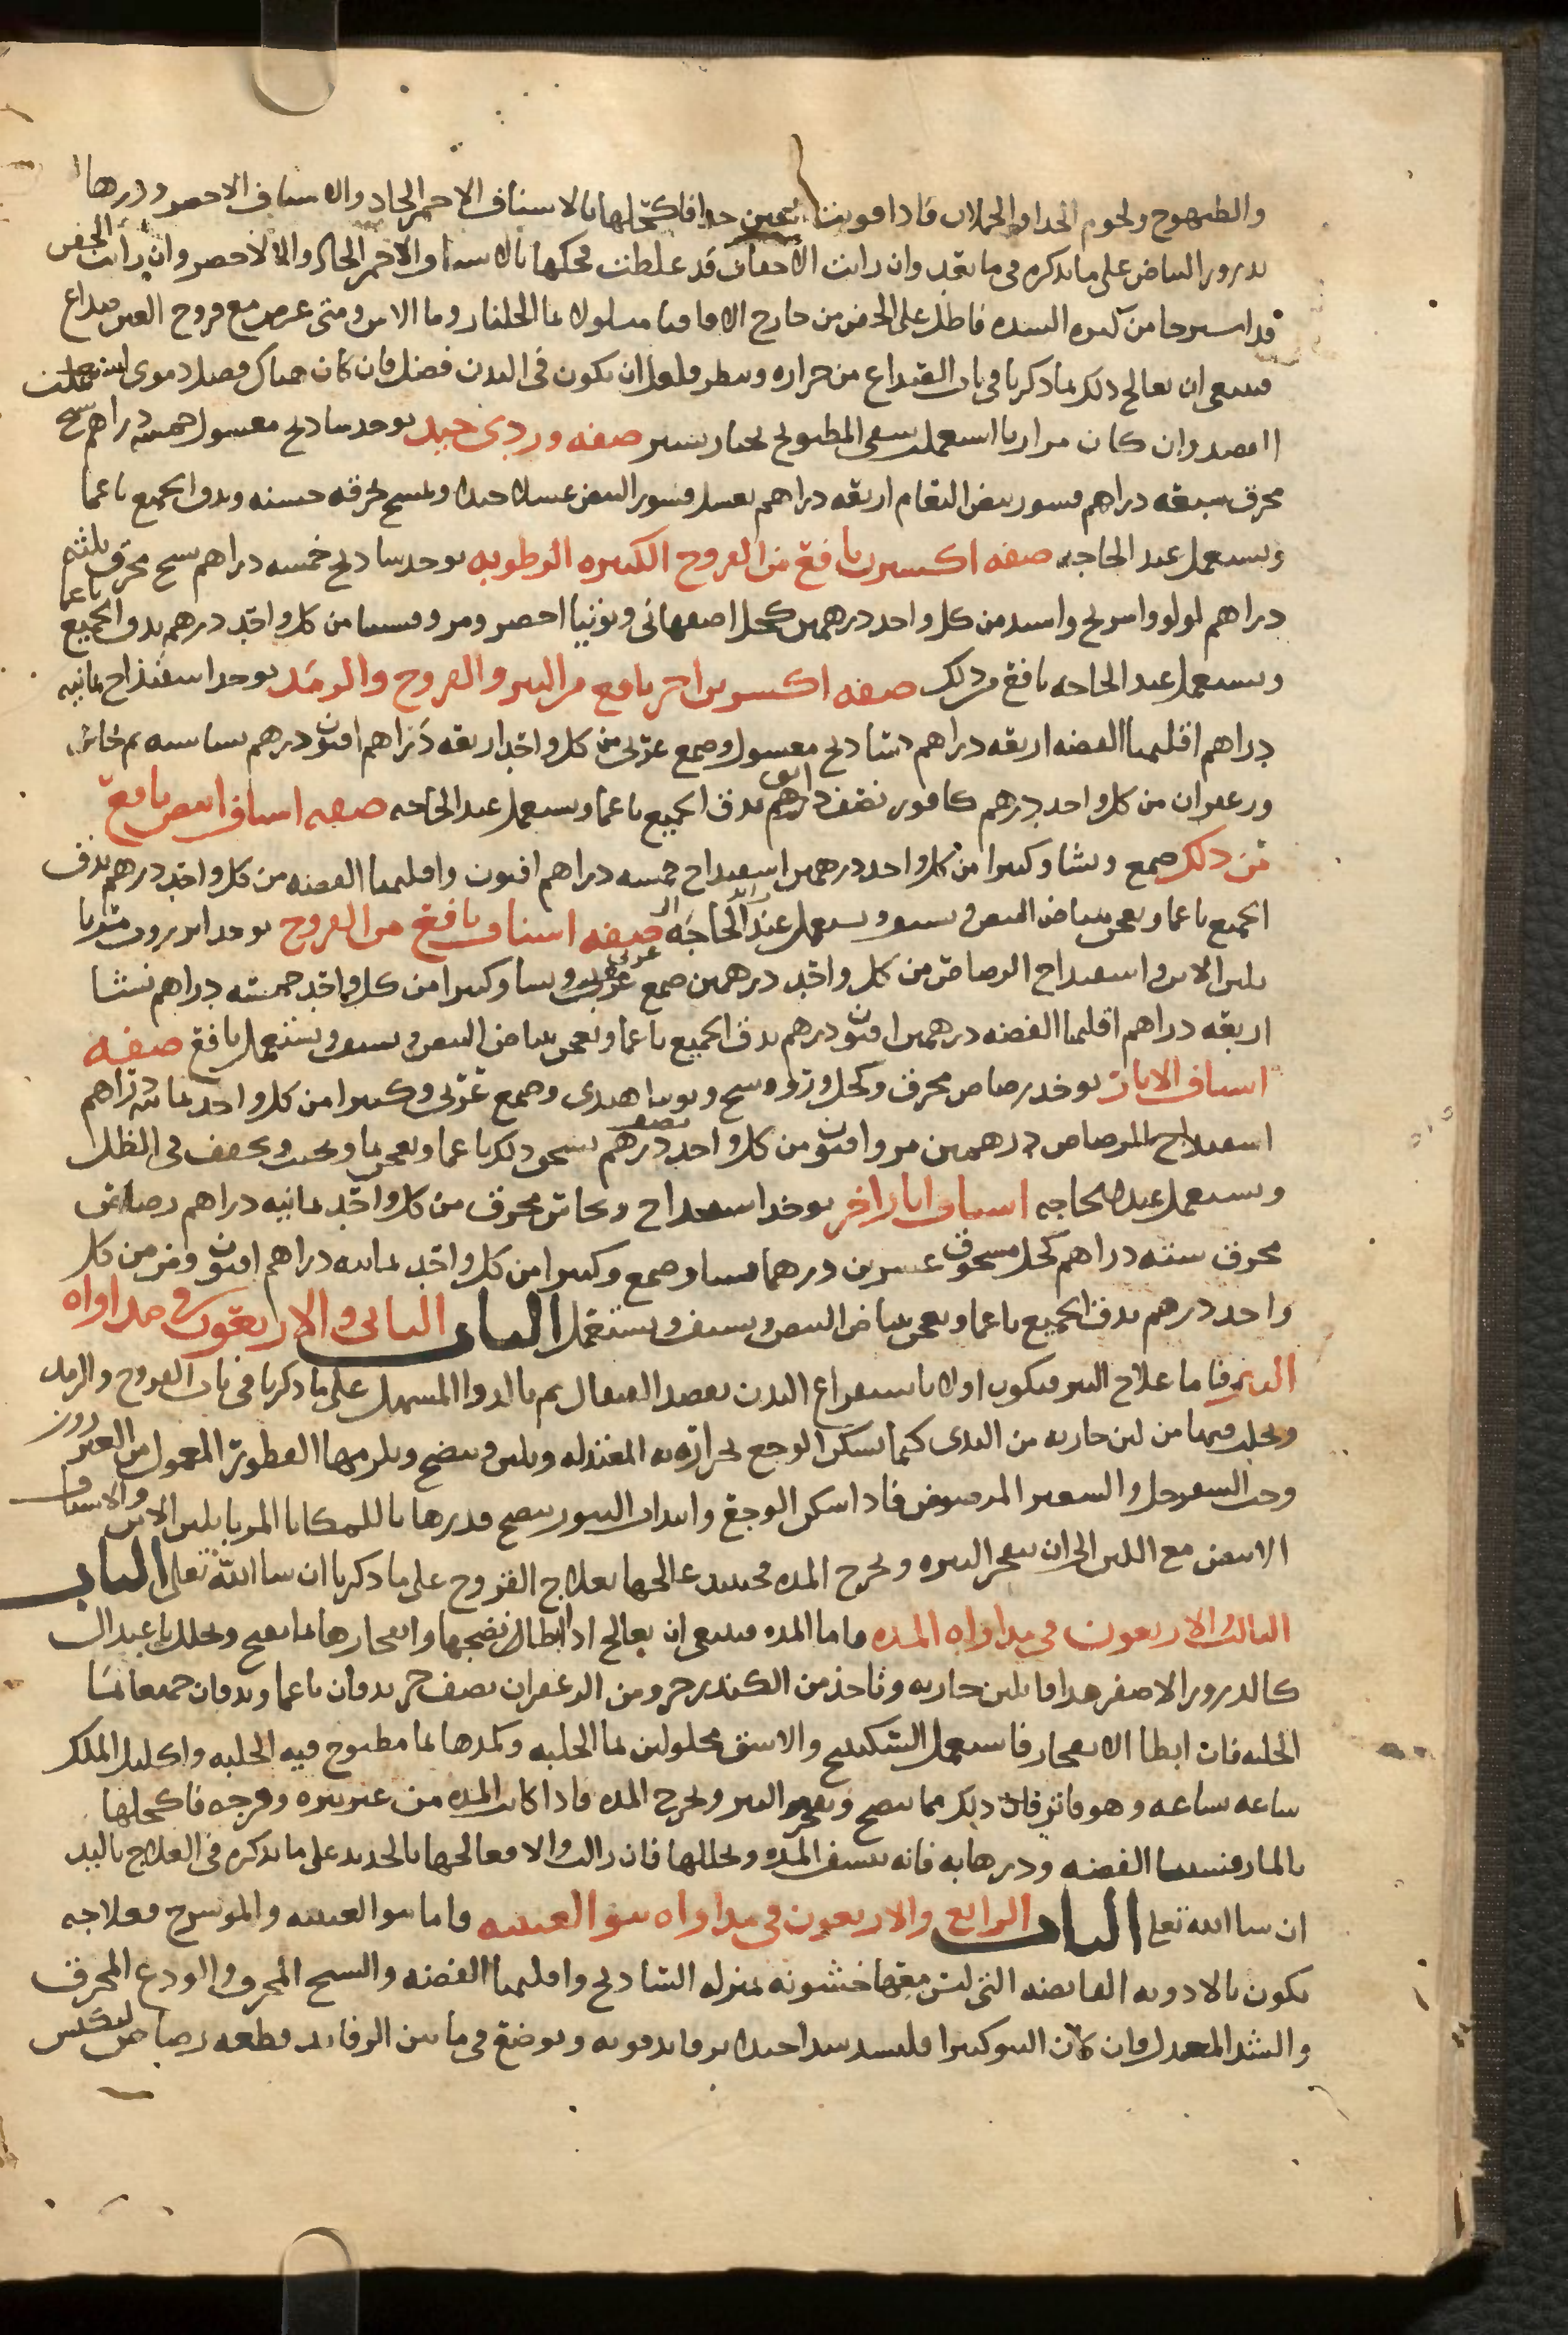 والطيهوج ولحوم الجدا والحملان فاذا قويت العين جدا فاكحلها بالاشياف الاحمر الحاد والاشياف الاخضر وذرها
بذرور البياض على ما نذكره في ما بعد وان رايت الاجفان قد غلظت فحكها بالاشياف الاحمر الحاد والا الاخضر وان رايت الجفن
قد استرخا من كثره الشده فاطل على الجفن من خارج الاقاقيا مبلولا بما الجلنار وما الاس ومتى عرض مع قروح العين صداع
فينبغي ان تعالج ذلك بما ذكرنا في باب الصداع من حراره وينظر فلعل ان يكون في البدن فضل فان كان هناك فضل دموي استعملت
الفصد وان كان مراريا استعملت سقي المطبوخ بخيار شنبر صفه وردي جيد يوخذ شادنج مغسول خمسه دراهم شيح
محرق سبعه دراهم قشور بيض النعام اربعه دراهم يغسل قشور البيض غسلا جيدا ويمسح بخرقه خشنه ويدق الجميع ناعما
ويستعمل عند الحاجه صفه اكسيرين نافع من القروح الكثيره الرطوبه يوخذ شادنج خمسه دراهم شيح محرق ثلثه
دراهم لولو واسرنج واسد من كل واحد درهمين كحل اصفهاني وتوتيا اخضر ومرقشيثا من كل واحد درهم يدق الجميع ناعما
ويستعمل عند الحاجه نافع من ذلك صفه اكسيرين اخر نافع من البثر والقروح والرمد يوخذ اسفيذاج ثمانيه
دراهم اقليميا الفضه اربعه دراهم شادنج مغسول وصمغ عربي من كل واحد اربعه دراهم افيون درهم ساسه نحاس
وزعفران من كل واحد درهم كافور نصف دانق يدق الجميع ناعما ويستعمل عند الحاجه صفه اشياف ابيض نافع
من ذلك صمغ ونشا وكثيرا من كل واحد درهمين اسفيداج خمسه دراهم افيون واقليميا الفضه من كل واحد درهم يدق
الجميع ناعما ويعجن ببياض البيض ويشيف ويستعمل عند الحاجه صفه اشياف نافع من القروح يوخذ انزروت مربا
بلبن الاتن واسفيداج الرصاص من كل واحد درهمين صمغ عربي ونشا وكثيرا من كل واحد خمسه دراهم نشا
اربعه دراهم اقليميا الفضه درهمين افيون درهم يدق الجميع ناعما ويعجن ببياض البيض ويشيف ويستعمل نافع صفه
اشياف الابار يوخذ رصاص محرق وكحل وتوتيا هندي وصمغ عربي وكثيرا من كل واحد ثمانيه دراهم
اسفيداج الرصاص درهمين مر وافيون من كل واحد نصف درهم يسحق ذلك ناعما ويعجن بما ويجفف في الظل
ويستعمل عند الحاجه اشياف ابار اخر يوخذ اسفيداج ونحاس محرق من كل واحد ثمانيه دراهم رصاص
محرق سته دراهم كحل مسحوق عشرين درهما نشا وصمغ وكثيرا من كل واحد ثمانيه دراهم افيون ومر من كل
واحد درهم يدق الجميع ناعما ويعجن ببياض البيض ويشيف ويستعمل الباب الثاني والاربعون في مداواه
البثر فاما علاج البثر فيكون اولا باستفراغ البدن بفصد القيفال ثم بالدوا المسهل على ما ذكرنا في باب القروح والرمد
ويحلب فيها من لبن جاريه من الثدي كيما يسكن الوجع بحرارته المعتدله ويلين وينضج ويلزمها القطور المعمول من بزر
وحب السفرجل والشعير المرضوض فاذا سكن الوجع وابتدات البثور تنضج فذرها بالملكايا المربا بلبن الاتن والاشياف
الابيض مع اللبن الى ان تنفجر البثره وتخرج المده فحينئذ عالجها بعلاج القروح على ما ذكرنا ان شا الله تعلى الباب
الثالث والاربعون في مداواه المده واما المده فينبغي ان تعالج اذا ابطا نضجها وانفجارها بما ينضج ويحلل باعتدال
كالذرور الاصفر مدافا بلبن جاريه وتاخذ من الكندر جزو ومن الزعفران نصف جز يدقان ناعما ويدافان جميعا بما
الحلبه فان ابطا الانفجار فاستعمل السكبينج والاشق محلولين بما الحلبه وكمدها بما مطبوخ فيه الحلبه واكليل الملك
ساعه ساعه وهو فاتر فان ذلك مما ينضج ويفجر البثر ويخرج المده فاذا كانت المده من غير بثره وقرحه فاكحلها
بالمارقشيثا الفضه وذرها به فانه ينشف المده ويحللها فان زالت والا فعالجها بالحديد على ما نذكره في العلاج باليد
ان شا الله تعلى الباب الرابع والاربعون في مداواه نتو العنبيه واما نتو العنبيه والموسرج فعلاجه
يكون بالادويه القابضه التي ليس معها خشونه بمنزله الشادنج واقليميا الفضه والشيح المحرق والودع المحرق
والشد المعتدل فان كان النتو كبيرا فليشد شدا جيدا برفايد قويه ويوضع في ما بين الرفائد قطعه رصاص ليكبس